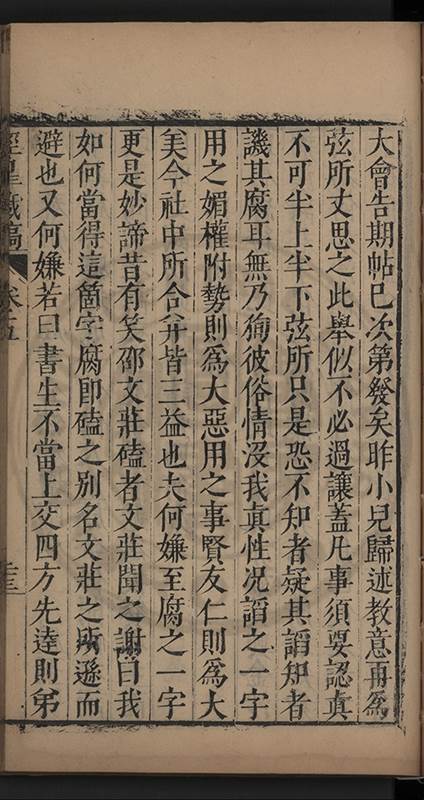 大會告期帖已次第發矣昨小兒歸述教意再爲
弦所丈思之此舉似不必過讓蓋凡事須要認眞
不可半上半下弦所只是恐不知者疑其謟知者
譏其腐耳無乃狥彼俗情没我眞性况謟之一字
用之媚權附勢則爲大惡用之事賢友仁則爲大
美今社中所合并皆三益也夫何嫌至腐之一字
更是妙諦昔有笑邵文莊磕者文莊聞之謝曰我
如何當得這箇字腐即磕之别名文莊之所遜而
避也又何嫌若曰書生不當上交四方先達則弟
經臯藏稿 卷五